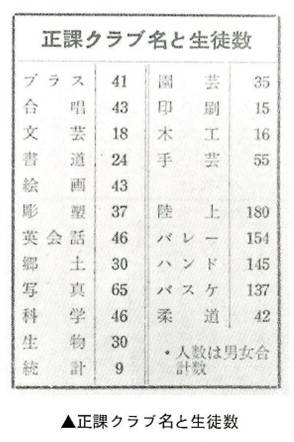 正課クラブ名と生徒数
ブラス 41
合唱 43
文芸 18
書道 24
絵画 43
彫塑 37
英会話 46
郷土 30
写真 65
科学 46
生物 30
統計 9
園芸 35
印刷 15
木工 16
手芸 55
陸上 180
バレー 154
ハンド 145
バスケ 137
柔道 42
・人数は男女合
計数
▲正課クラブ名と生徒数